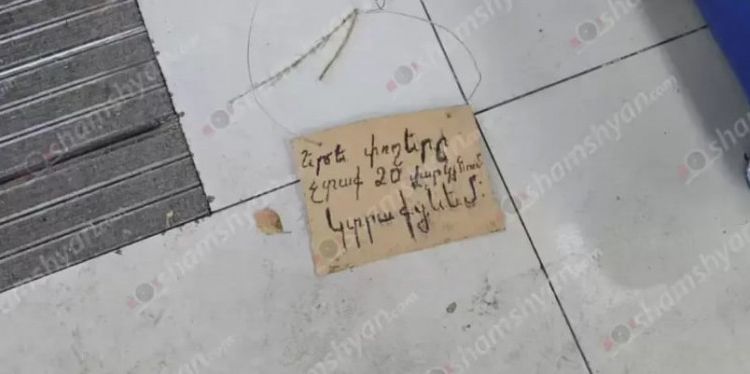 Եթե փողերը
չտրաք 20 վարկյնում
կտրաքցնեմ:
shamshyan.com
shamshyan.com
shamshyan.com
shamshyan.com
shamshyan.com
shamshyan.com
shamshyan.com
shamshyan.com